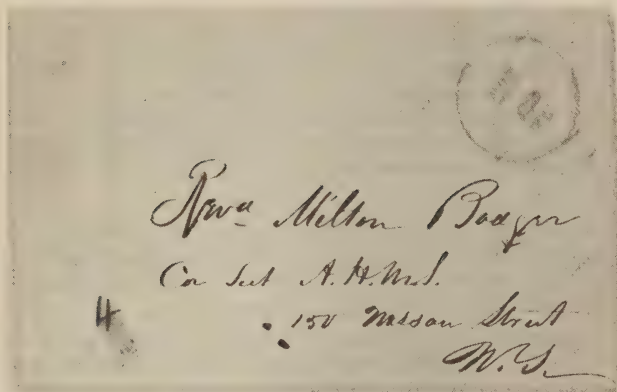 Revd Milton Badger
Cor Sect A.H.M.S.
150 Nassau Street
N.Y.
4